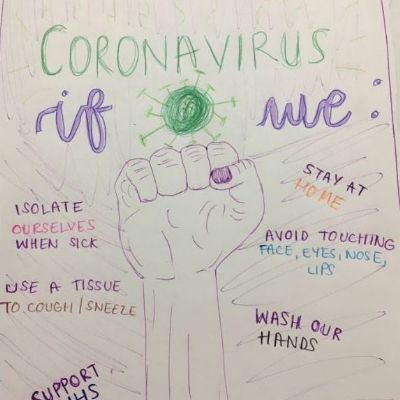 CORONAVIRUS
if we:
ISOLATE
OURSELVES
WHEN SICK
USE A TISSUE
TO COUGH/SNEEZE
SUPPORT
STAY AT
HOME
AVOID TOUCHING
FACE, EYES, NOSE,
LIPS
WASH OUR
HANDS